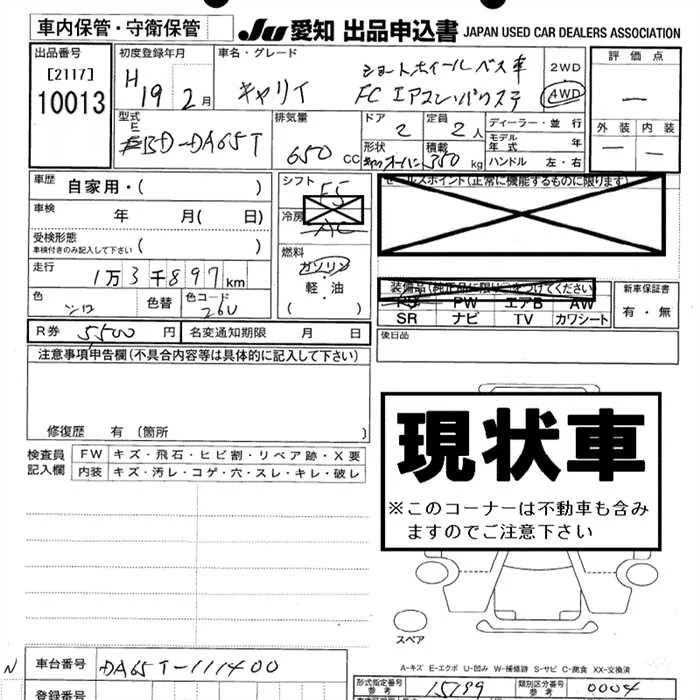 車内保管・守衛保管
Ju 愛知 出品申込書 JAPAN USED CAR DEALERS ASSOCIATION
出品番号
[2117]
10013
初度登録年月
H 19 2月
車名・グレード
ショートホイールベース車
キャリイ FC エアコン・パワステ
2WD
4WD
評価点
―
外装 内装
― ―
型式
EBD-DA65T
排気量
650 CC
ドア
2
定員
2人
形状
積載
350 kg
ディーラー・並行
モデル年式 年
ハンドル 左・右
車歴 自家用・( )
車検 年 月( 日)
受検形態
車検付きのみ記入して下さい ( )
走行
1万3千897km
色 シロ 色替 色コード 26U
R券 5,500 円 名変通知期限 月 日
シフト F5
冷房 AC
燃料
ガソリン
・
軽・油
( )
セールスポイント(正常に機能するものに限ります)
装備品(純正品に限り○をつけてください)
PS PW エアB AW
SR ナビ TV カワシート
新車保証書
有・無
後日品
注意事項申告欄(不具合内容等は具体的に記入して下さい)
修復歴 有 (箇所 )
検査員記入欄
FW キズ・飛石・ヒビ割・リペア跡・X要
内装 キズ・汚レ・コゲ・穴・スレ・キレ・破レ
現状車
※このコーナーは不動車も含み
ますのでご注意下さい
スペア
A-キズ E-エクボ U-凹み W-補修跡 S-サビ C-腐食 XX-交換済
N 車台番号 DA65T-111400
登録番号
形式指定番号
参考 15799
類別区分番号
参考 0004